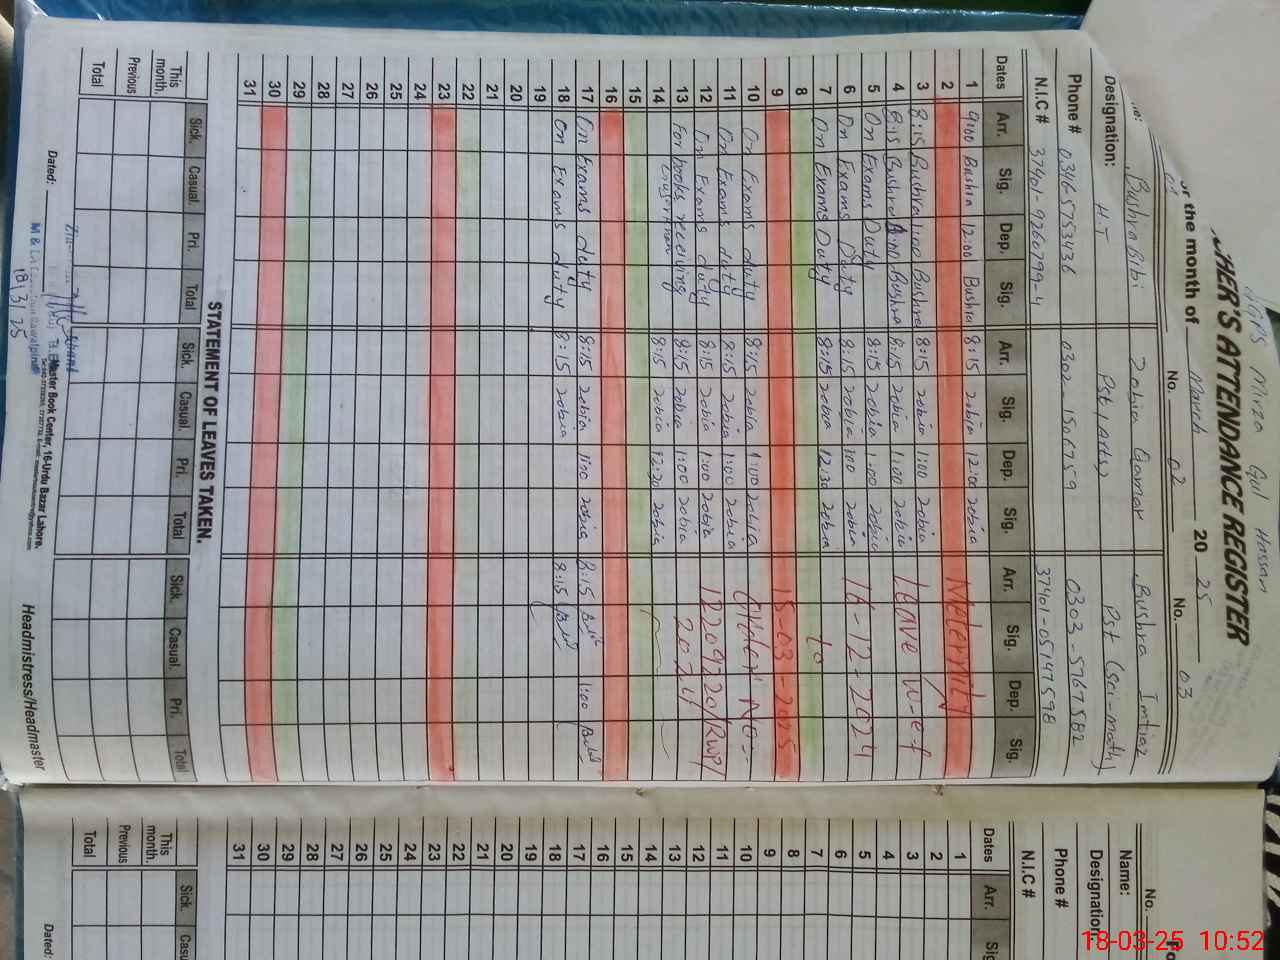 GGPS Mirza Gul Hassan
HER'S ATTENDANCE REGISTER
or the month of March 20 25
No. 02 No. 03
Bushra Bibi Zobia Qamar Bushra Imtiaz
Designation: H.T Pst (Arts) Pst (sci-math)
Phone # 0346-5753436 0302-1506759 0303-5767582
N.I.C # 37401-9260799-4 37401-0514759-8
Dates Arr. Sig. Dep. Sig. Arr. Sig. Dep. Sig. Arr. Sig. Dep. Sig.
1 9:00 Bushra 12:00 Bushra 8:15 Zobia 12:00 Zobia Meternity
2
3 8:15 Bushra 1:00 Bushra 8:15 Zobia 1:00 Zobia Leave w-e-f
4 8:15 Bushra Bushra 8:15 Zobia 1:00 Zobia
5 On Exams Duty 8:15 Zobia 1:00 Zobia 16-12-2024
6 On Exams Duty 8:15 Zobia 1:00 Zobia
7 On Exams Duty 8:15 Zobia 12:30 Zobia to
8
9 15-03-2025
10 On Exams duty 8:15 Zobia 1:00 Zobia Order No:-
11 On Exams duty 8:15 Zobia 1:00 Zobia
12 On Exams duty 8:15 Zobia 1:00 Zobia 12209220/RWP/
13 For books receiving 8:15 Zobia 1:00 Zobia 2024
14 8:15 Zobia 12:30 Zobia
15
16
17 On Exams duty 8:15 Zobia 1:00 Zobia 8:15 1:00
18 On Exams duty 8:15 Zobia 8:15
19
20
21
22
23
24
25
26
27
28
29
30
31
STATEMENT OF LEAVES TAKEN.
Sick. Casual. Pri. Total Sick. Casual. Pri. Total Sick. Casual. Pri. Total
This month.
Previous
Total
Dated: Master Book Center, 16-Urdu Bazar Lahore. Headmistress/Headmaster
18/3/25
No.
Name:
Designation
Phone #
N.I.C #
Dates Arr. Sig
1
2
3
4
5
6
7
8
9
10
11
12
13
14
15
16
17
18
19
20
21
22
23
24
25
26
27
28
29
30
31
Sick. Casu
This month.
Previous
Total
Dated:
18-03-25 10:52